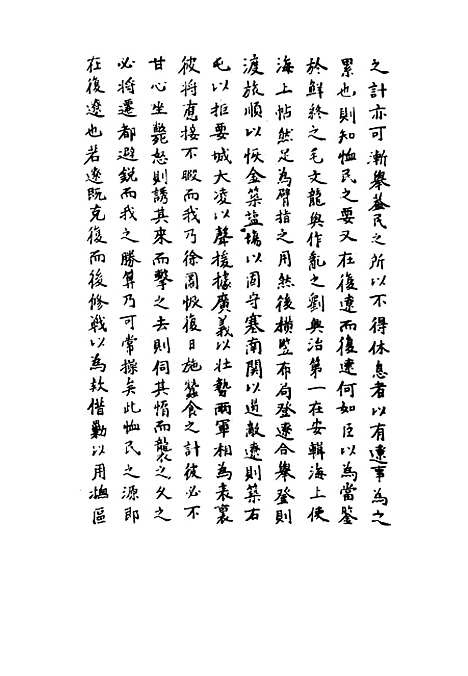 之計亦可漸舉葢民之所以不得休息者以有遼事為之
累也則知恤民之要又在復遼而復遼何如臣以為當鑒
於鮮終之毛文龍與作亂之劉興治第一在安輯海上使
海上帖然足為臂指之用然後橫豎布局登遼合舉登則
渡旅順以恢金築鹽塲以固守塞南関以遏敵遼則築右
屯以拒要城大凌以聲援據廣義以壯勢兩軍相為表裏
彼將應接不暇而我乃徐圖恢復日施蠶食之計彼必不
甘心坐斃怒則誘其來而擊之去則伺其惰而襲之久之
必將遷都避銳而我之勝算乃可常操矣此恤民之源即
在復遼也若遼既克復而後修戰以為款借勦以用撫區